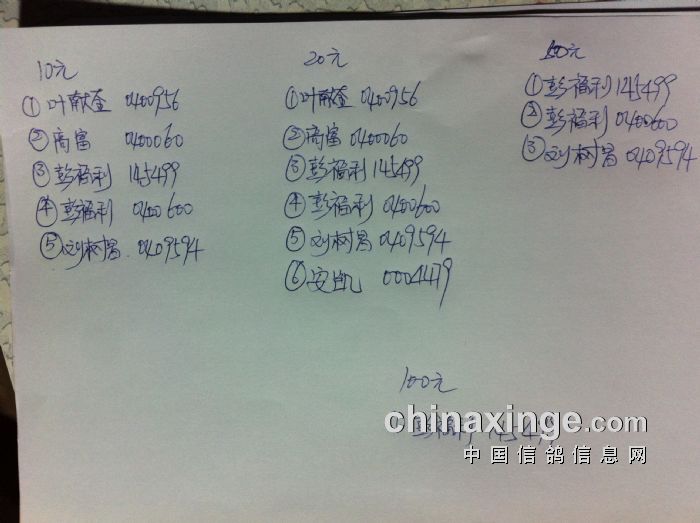 10元
①叶献奎 0400956
②高富 0400060
③彭福利 145499
④彭福利 0400600
⑤刘树昌 0409594
20元
①叶献奎 0400956
②高富 0400060
③彭福利 145499
④彭福利 0400600
⑤刘树昌 0409594
⑥安凯 0004479
50元
①彭福利 145499
②彭福利 0400600
③刘树昌 0409594
100元
彭福利 145499
chinaxinge.com
中国信鸽信息网